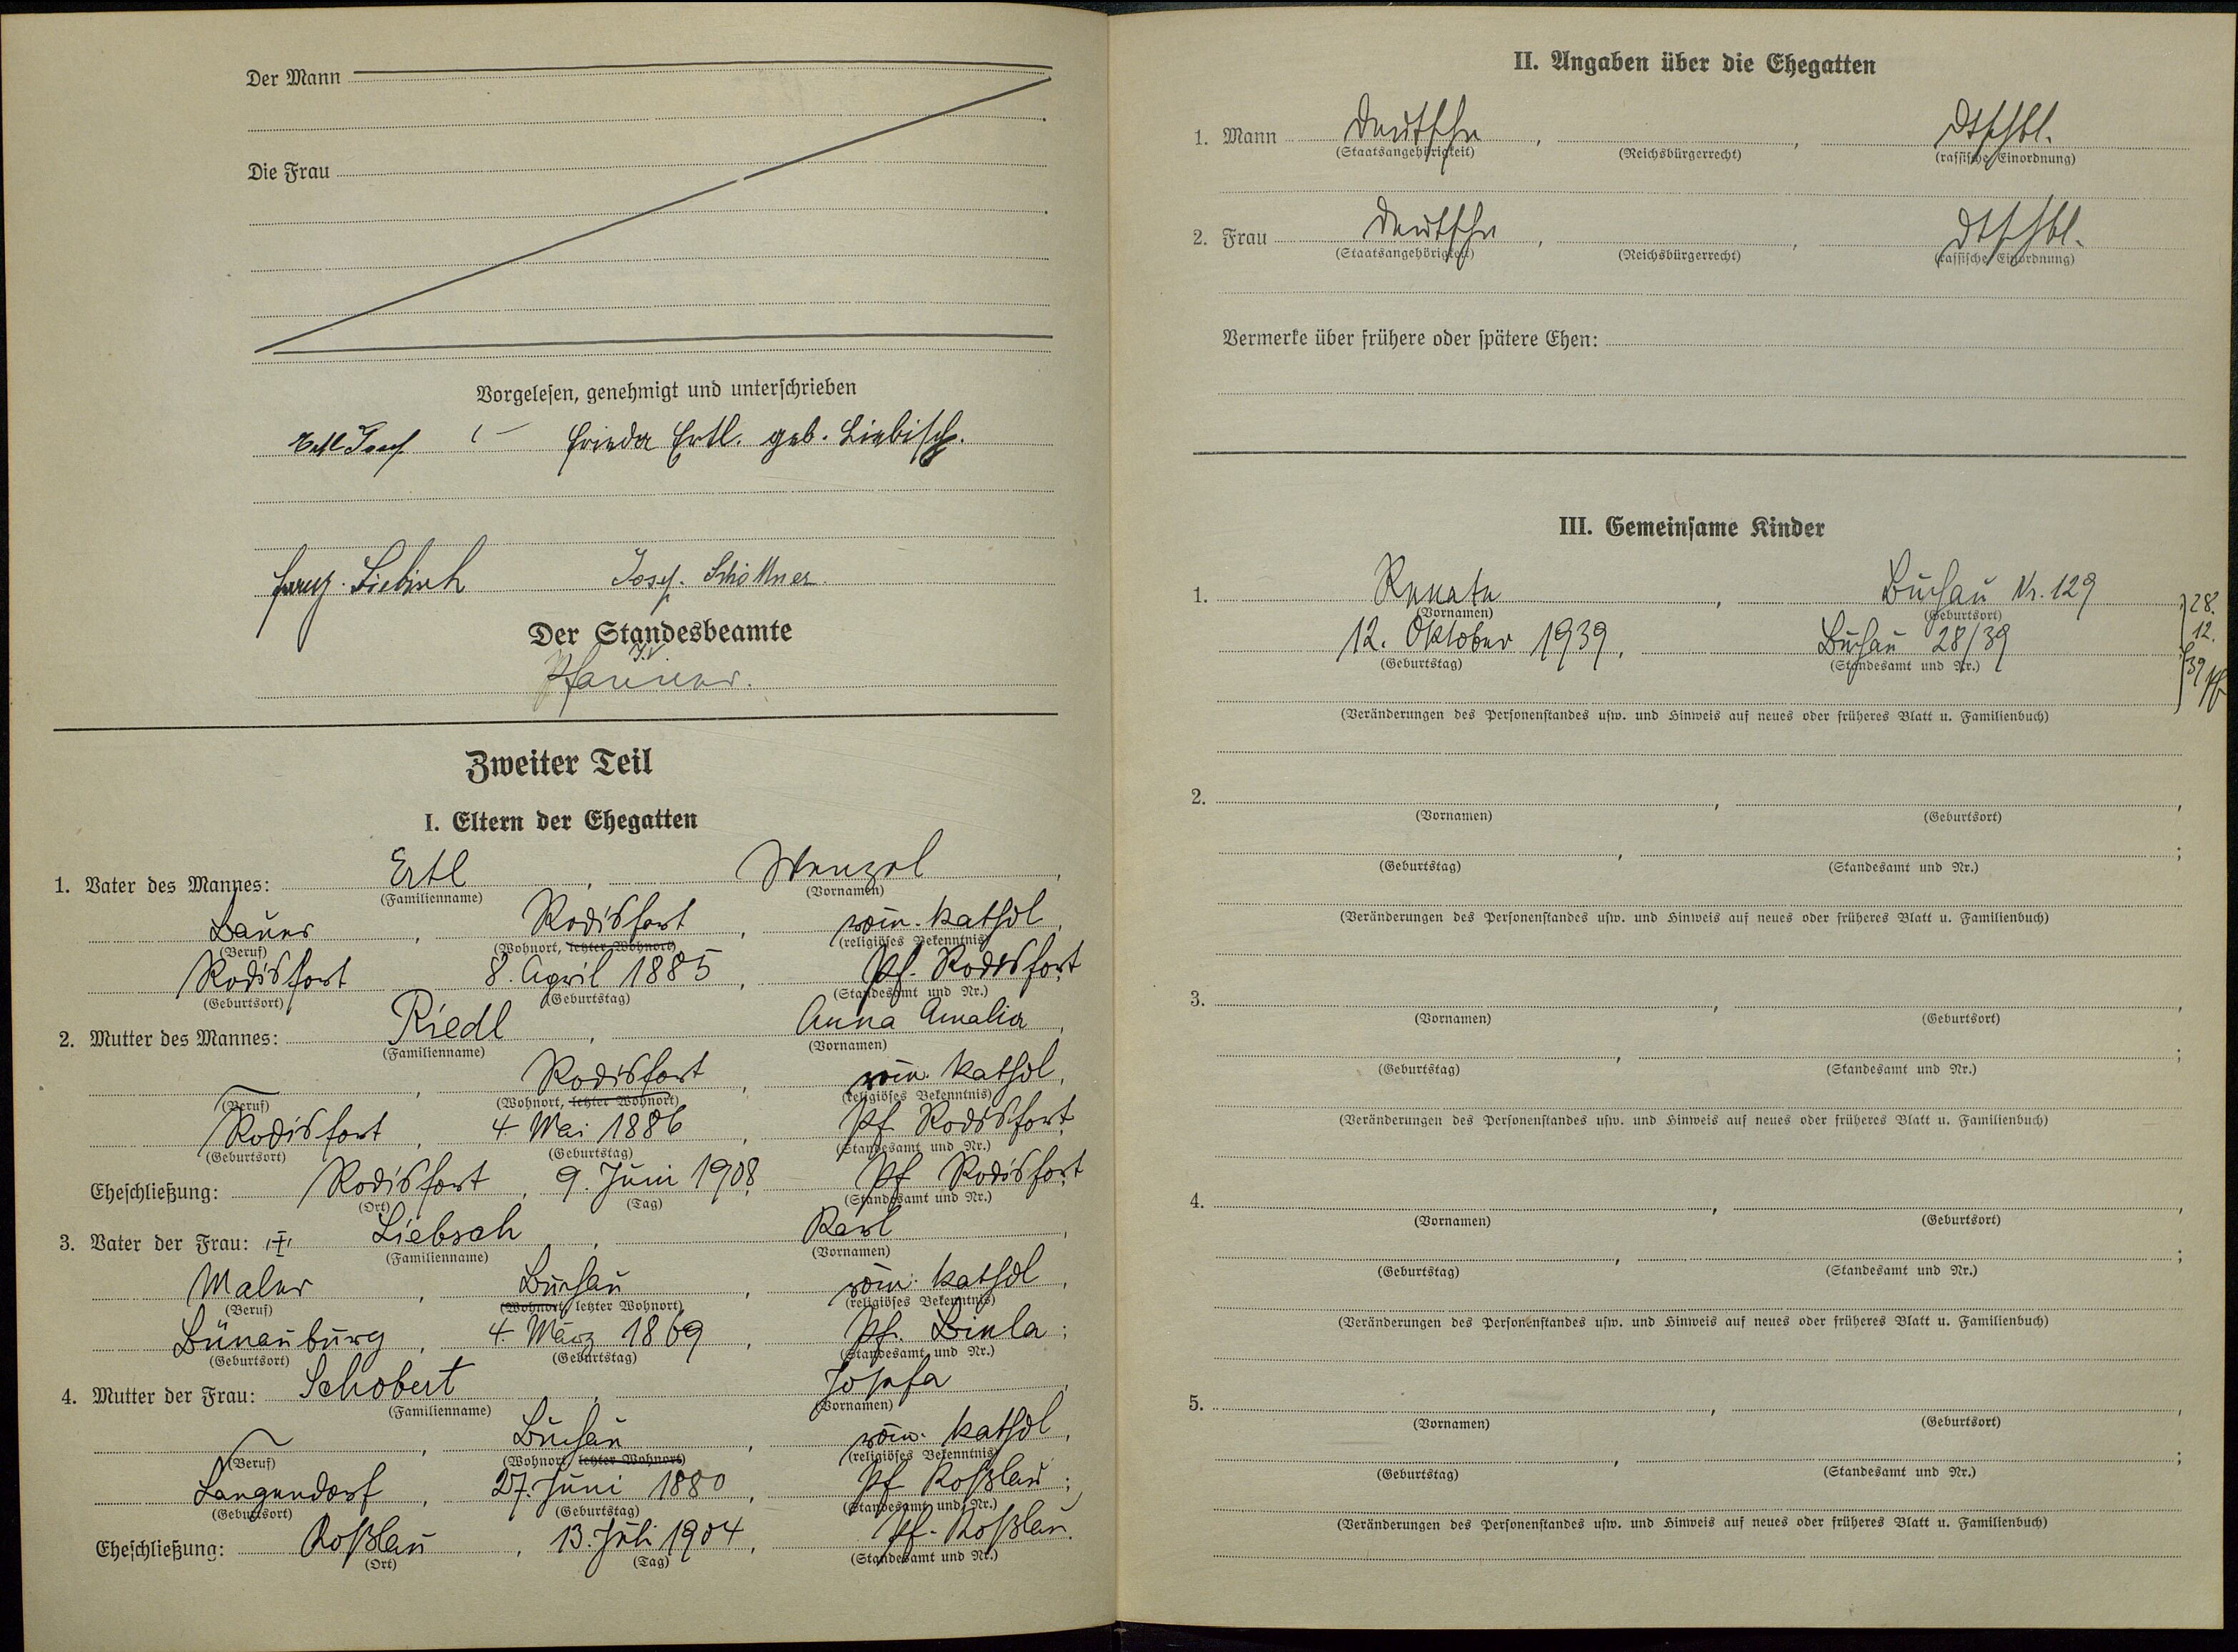 Der Mann
Die Frau
Vorgelesen, genehmigt und unterschrieben
Ertl Josef Frieda Ertl. geb. Liebisch.
Franz. Liebisch Josef. Schöttner.
Der Standesbeamte
J.V.
Zweiter Teil
I. Eltern der Ehegatten
1. Vater des Mannes: Ertl, Wenzel,
(Familienname) (Vornamen)
Bauer, Rodisfort, röm. kathol,
(Beruf) (Wohnort, letzter Wohnort) (religiöses Bekenntnis)
Rodisfort 8. April 1885, Pf. Rodisfort
(Geburtsort) (Geburtstag) (Standesamt und Nr.)
2. Mutter des Mannes: Riedl, Anna Amalia,
(Familienname) (Vornamen)
Rodisfort, röm. kathol,
(Beruf) (Wohnort, letzter Wohnort) (religiöses Bekenntnis)
Rodisfort, 4. Mai 1886, Pf. Rodisfort
(Geburtsort) (Geburtstag) (Standesamt und Nr.)
Eheschließung: Rodisfort, 9. Juni 1908, Pf Rodisfort
(Ort) (Tag) (Standesamt und Nr.)
3. Vater der Frau: Liebsch, Karl,
(Familienname) (Vornamen)
Maler, Buchau, röm. kathol,
(Beruf) (Wohnort, letzter Wohnort) (religiöses Bekenntnis)
Bünauburg, 4. März 1869, Pf. Biela;
(Geburtsort) (Geburtstag) (Standesamt und Nr.)
4. Mutter der Frau: Schobert, Josefa,
(Familienname) (Vornamen)
Buchau, röm. kathol,
(Beruf) (Wohnort, letzter Wohnort) (religiöses Bekenntnis)
Langendorf, 27. Juni 1880, Pf Koßlau;
(Geburtsort) (Geburtstag) (Standesamt und Nr.)
Eheschließung: Koßlau, 13. Juli 1904, Pf. Koßlau.
(Ort) (Tag) (Standesamt und Nr.)
II. Angaben über die Ehegatten
1. Mann Deutsche, , dtschbl.
(Staatsangehörigkeit) (Reichsbürgerrecht) (rassische Einordnung)
2. Frau Deutsche, , dtschbl.
(Staatsangehörigkeit) (Reichsbürgerrecht) (rassische Einordnung)
Vermerke über frühere oder spätere Ehen:
III. Gemeinsame Kinder
1. Renate, Buchau Nr. 129
(Vornamen) (Geburtsort)
12. Oktober 1939, Buchau 28/39
(Geburtstag) (Standesamt und Nr.)
28.
12.
39
(Veränderungen des Personenstandes usw. und Hinweis auf neues oder früheres Blatt u. Familienbuch)
2. , ,
(Vornamen) (Geburtsort)
, ;
(Geburtstag) (Standesamt und Nr.)
(Veränderungen des Personenstandes usw. und Hinweis auf neues oder früheres Blatt u. Familienbuch)
3. , ,
(Vornamen) (Geburtsort)
, ;
(Geburtstag) (Standesamt und Nr.)
(Veränderungen des Personenstandes usw. und Hinweis auf neues oder früheres Blatt u. Familienbuch)
4. , ,
(Vornamen) (Geburtsort)
, ;
(Geburtstag) (Standesamt und Nr.)
(Veränderungen des Personenstandes usw. und Hinweis auf neues oder früheres Blatt u. Familienbuch)
5. , ,
(Vornamen) (Geburtsort)
, ;
(Geburtstag) (Standesamt und Nr.)
(Veränderungen des Personenstandes usw. und Hinweis auf neues oder früheres Blatt u. Familienbuch)